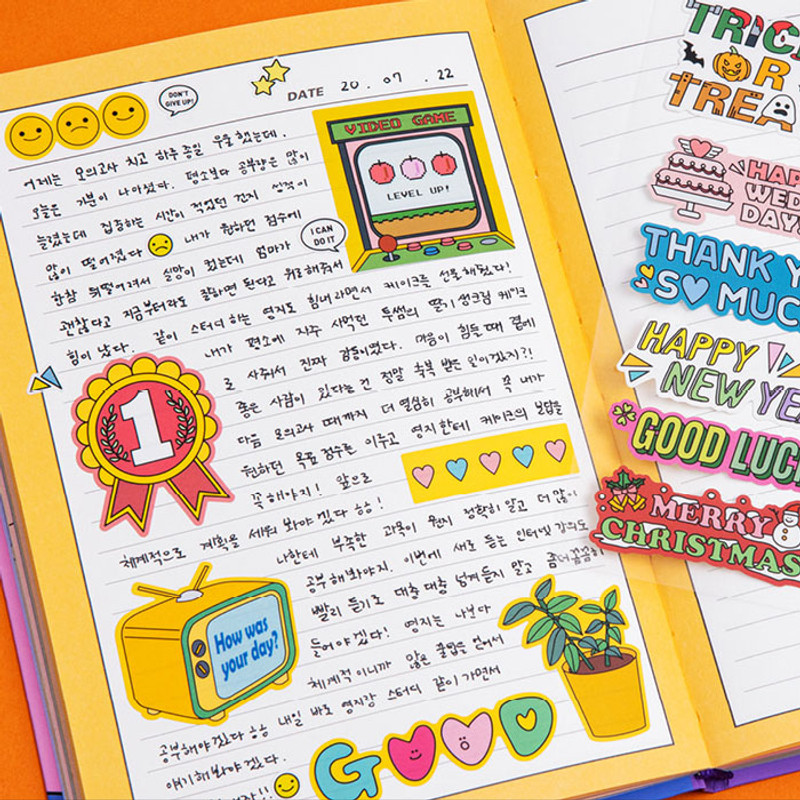 DON'T
GIVE UP!
DATE 20 . 07 . 22
어제는 모의고사 치고 하루 종일 우울했는데,
오늘은 기분이 나아졌다. 평소보다 공부량은 많이
늘렸는데 집중하는 시간이 적었던 건지 성적이
많이 떨어졌다 내가 원하던 점수에
I CAN
DO IT
한참 뒤떨어져서 실망이 컸는데 엄마가
괜찮다고 지금부터라도 잘하면 된다고 위로해줘서
힘이 났다. 같이 스터디 하는 영지도 힘내라면서 케이크를 선물해줬다!
내가 평소에 자주 사먹던 투썸의 딸기 생크림 케이크
로 사줘서 진짜 감동이었다. 마음이 힘들 때 곁에
좋은 사람이 있다는 건 정말 축복 받은 일이겠지?!
다음 모의고사 때까지 더 열심히 공부해서 꼭 내가
원하던 목표 점수를 이루고 영지한테 케이크의 보답을
꼭 해야지! 앞으로
체계적으로 계획을 세워 봐야겠다
나한테 부족한 과목이 뭔지 정확히 알고 더 많이
공부해봐야지. 이번에 새로 듣는 인터넷 강의도
빨리 듣기로 대충 대충 넘겨듣지 말고 좀 더 꼼꼼히
들어야겠다! 영지는 나보다
체계적이니까 많은 조언을 얻어서
공부해야겠다 내일 바로 영지랑 스터디 같이 가면서
얘기해봐야겠다.
VIDEO GAME
LEVEL UP!
1
How was
your day?
GOOD
TRICK
OR
TREA
HAP
WED
DAY
THANK Y
SO MUC
HAPPY
NEW YE
GOOD LUC
MERRY
CHRISTMAS